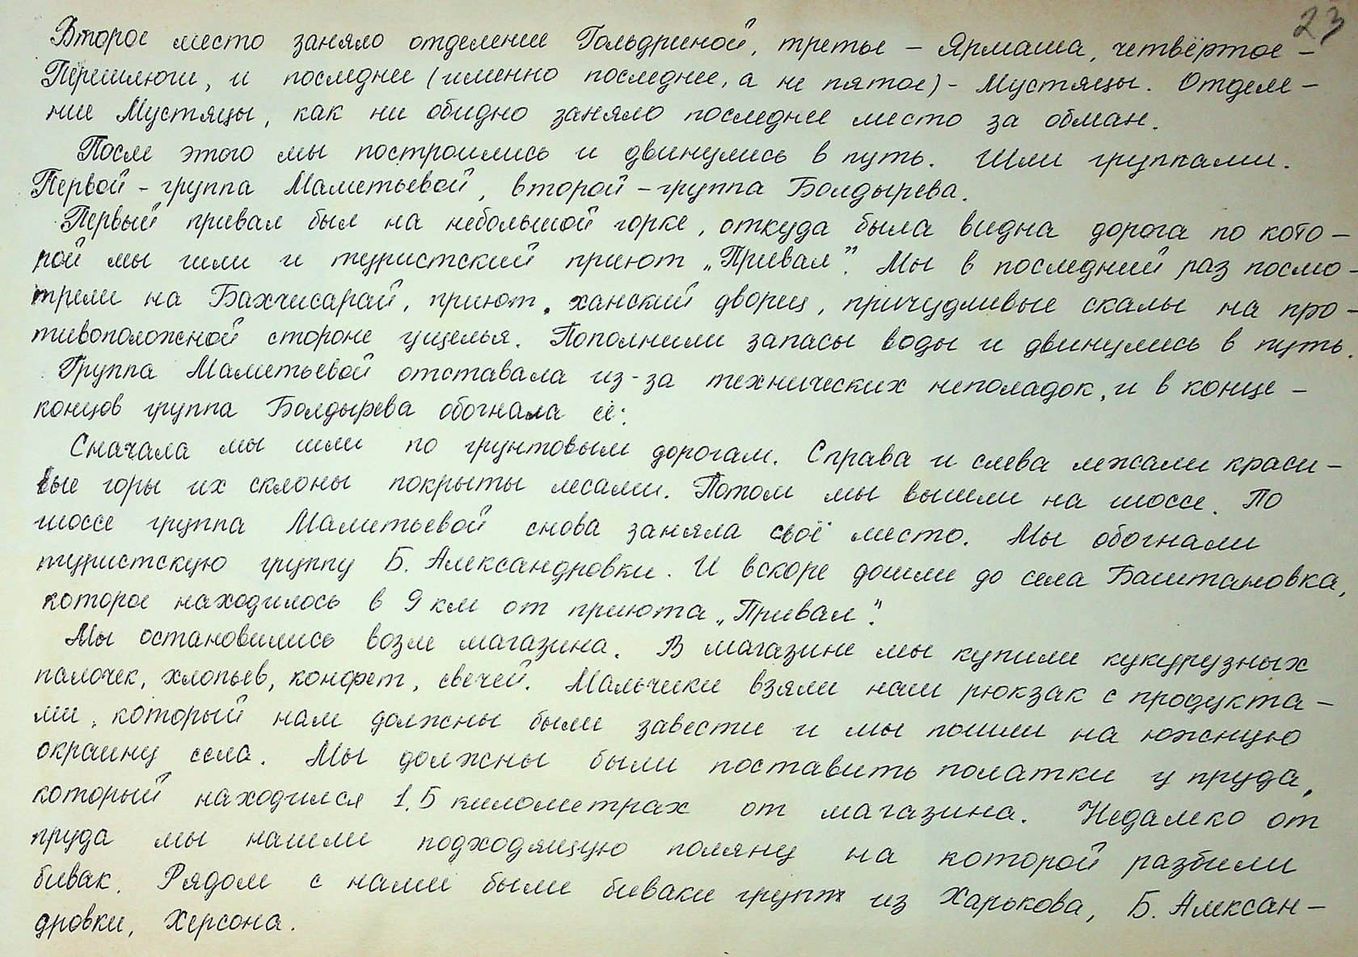 23
Второе место заняло отделение Гольдриной, третье – Ярмаша, четвёртое –
Перешлюги, и последнее (именно последнее, а не пятое) - Мустяцы. Отделе-
ние Мустяцы, как ни обидно заняло последнее место за обман.
После этого мы построились и двинулись в путь. Шли группами.
Первой - группа Маметьевой, второй – группа Болдырева.
Первый привал был на небольшой горке, откуда была видна дорога по кото-
рой мы шли и туристский приют „Привал”. Мы в последний раз посмо-
трели на Бахчисарай, приют, ханский дворец, причудливые скалы на про-
тивоположной стороне ущелья. Пополнили запасы воды и двинулись в путь.
Группа Маметьевой отставала из-за технических неполадок, и в конце -
концов группа Болдырева обогнала её.
Сначала мы шли по грунтовым дорогам. Справа и слева лежали краси-
вые горы их склоны покрыты лесами. Потом мы вышли на шоссе. По
шоссе группа Маметьевой снова заняла своё место. Мы обогнали
туристскую группу Б. Александровки. И вскоре дошли до села Баштановка,
которое находилось в 9 км от приюта „Привал”.
Мы остановились возле магазина. В магазине мы купили кукурузных
палочек, хлопьев, конфет, свечей. Мальчики взяли наш рюкзак с продукта-
ми, который нам должны были завести и мы пошли на южную
окраину села. Мы должны были поставить полатки у пруда,
который находился 1,5 километрах от магазина. Недалеко от
пруда мы нашли подходящую поляну на которой разбили
бивак. Рядом с нами были биваки групп из Харькова, Б. Алексан-
дровки, Херсона.